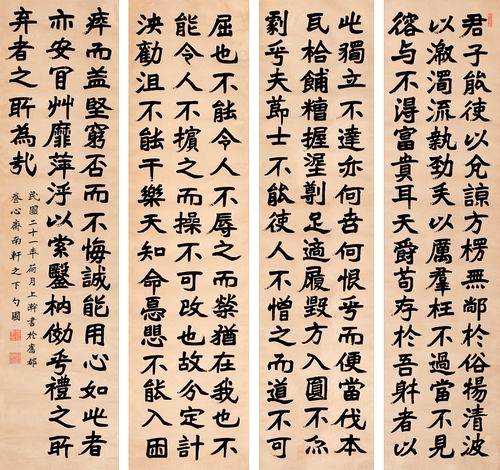 君子能使以兌諒方楞無鄙於俗揚清波
以激濁流執勁矢以厲羣枉不過當不見
容与不得富貴耳天爵苟存於吾躰者以
此獨立不達亦何咎何恨乎而便當伐本
瓦枱餔糟握埿剸足適履毀方入圓不亦
劇乎夫節士不能使人不憎之而道不可
屈也不能令人不辱之而榮猶在我也不
能令人不擯之而操不可改也故分定計
決勸沮不能干樂天知命憂懼不能入困
瘁而益堅窮否而不悔誠能用心如此者
亦安肎艸靡萍浮以索鑿枘傚乎禮之所
弃者之所為哉
民國二十一年荷月上澣書於舊都
養心齋南軒之下勺圃